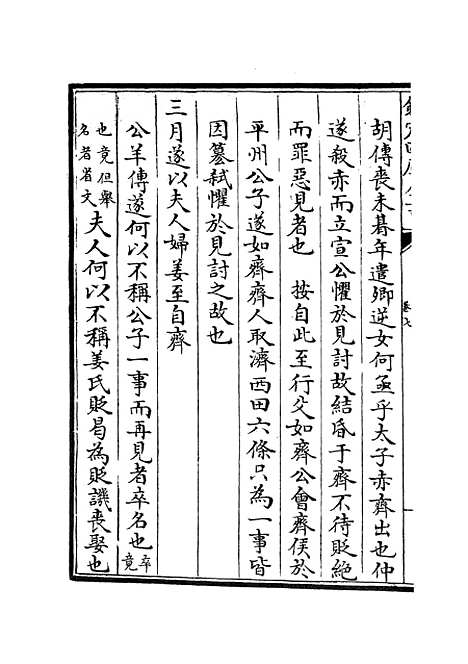 胡傳喪未朞年遣卿逆女何亟乎太子赤齊出也仲
遂殺赤而立宣公懼於見討故結昏于齊不待貶絶
而罪惡見者也　按自此至行父如齊公會齊侯於
平州公子遂如齊齊人取濟西田六條只為一事皆
因簒弑懼於見討之故也
三月遂以夫人婦姜至自齊
公羊傳遂何以不稱公子一事而再見者卒名也卒竟
也竟但舉名者省文夫人何以不稱姜氏貶曷為貶譏喪娶也
卷七